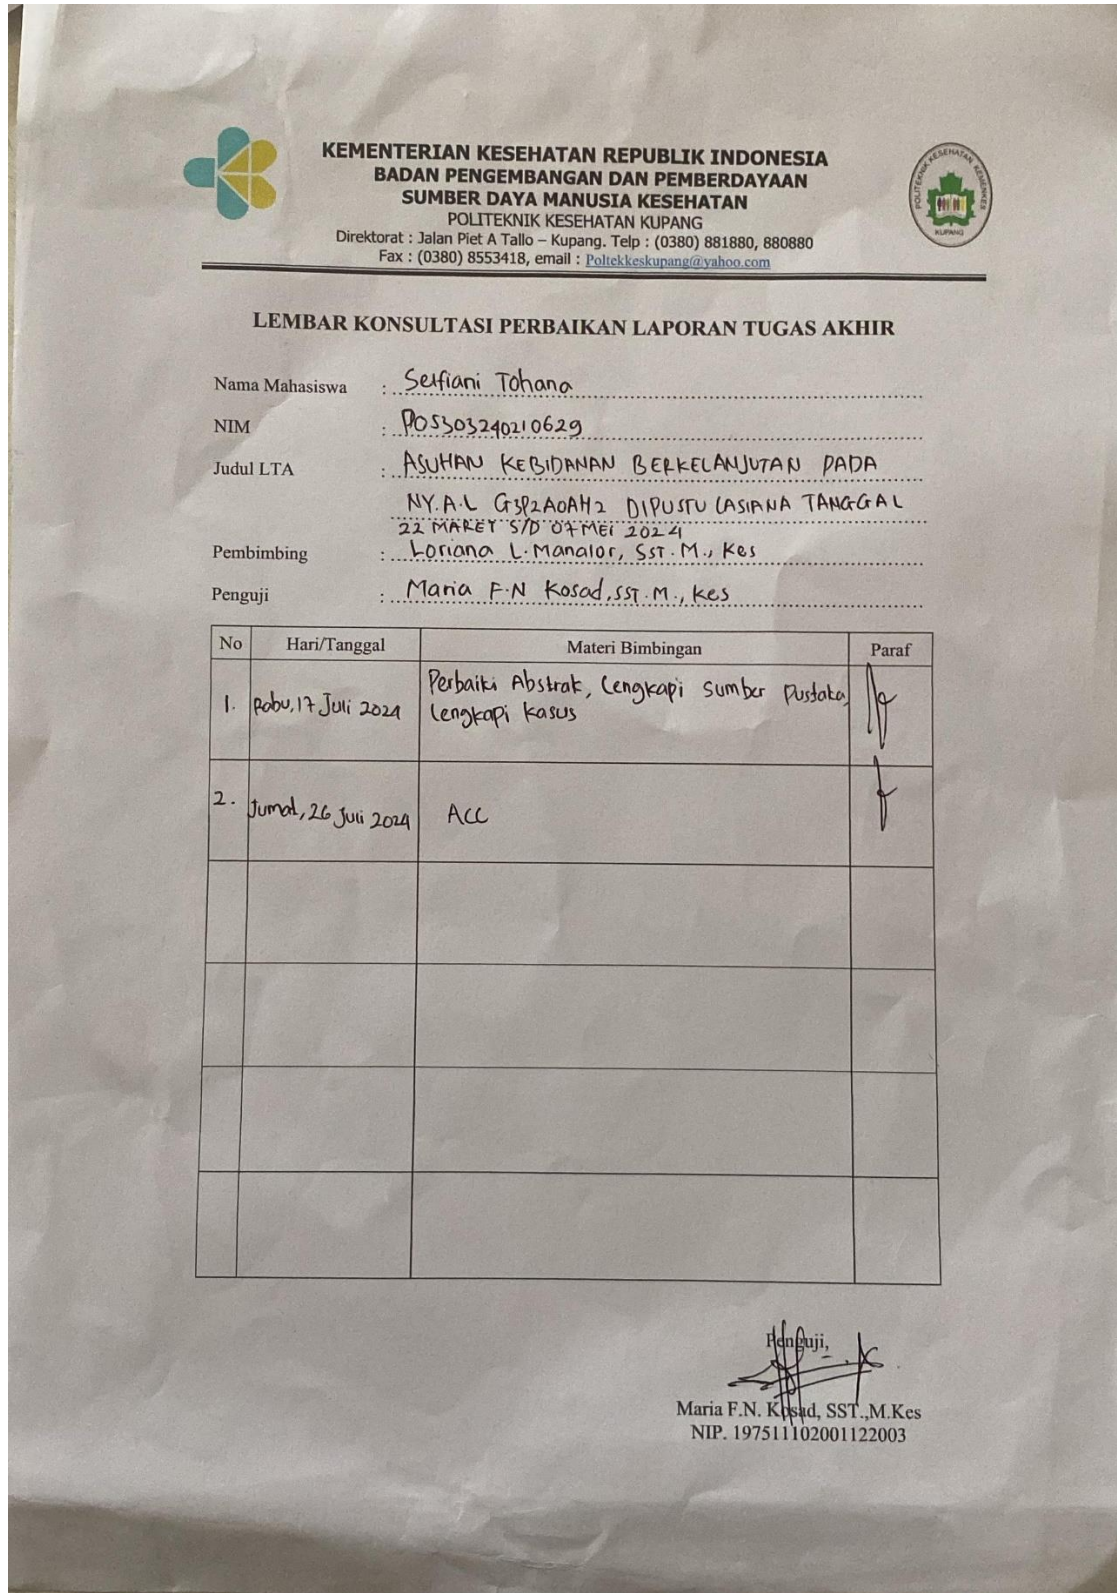 KEMENTERIAN KESEHATAN REPUBLIK INDONESIA
BADAN PENGEMBANGAN DAN PEMBERDAYAAN
SUMBER DAYA MANUSIA KESEHATAN
POLITEKNIK KESEHATAN KUPANG
Direktorat : Jalan Piet A Tallo – Kupang. Telp : (0380) 881880, 880880
Fax : (0380) 8553418, email : Poltekkeskupang@yahoo.com
POLITEKNIK KESEHATAN KEMENKES
KUPANG
LEMBAR KONSULTASI PERBAIKAN LAPORAN TUGAS AKHIR
Nama Mahasiswa : Selfiani Tohana
NIM : PO5303240210629
Judul LTA : ASUHAN KEBIDANAN BERKELANJUTAN PADA
NY.A.L G3P2A0AH2 DIPUSTU LASIANA TANGGAL
22 MARET S/D 07 MEI 2024
Pembimbing : Loriana L. Manalor, SST. M., Kes
Penguji : Maria F.N Kosad, SST. M., Kes
No Hari/Tanggal Materi Bimbingan Paraf
1. Rabu, 17 Juli 2024 Perbaiki Abstrak, Lengkapi sumber pustaka,
Lengkapi kasus
2. Jumat, 26 Juli 2024 ACC
Penguji,
Maria F.N. Kosad, SST.,M.Kes
NIP. 197511102001122003